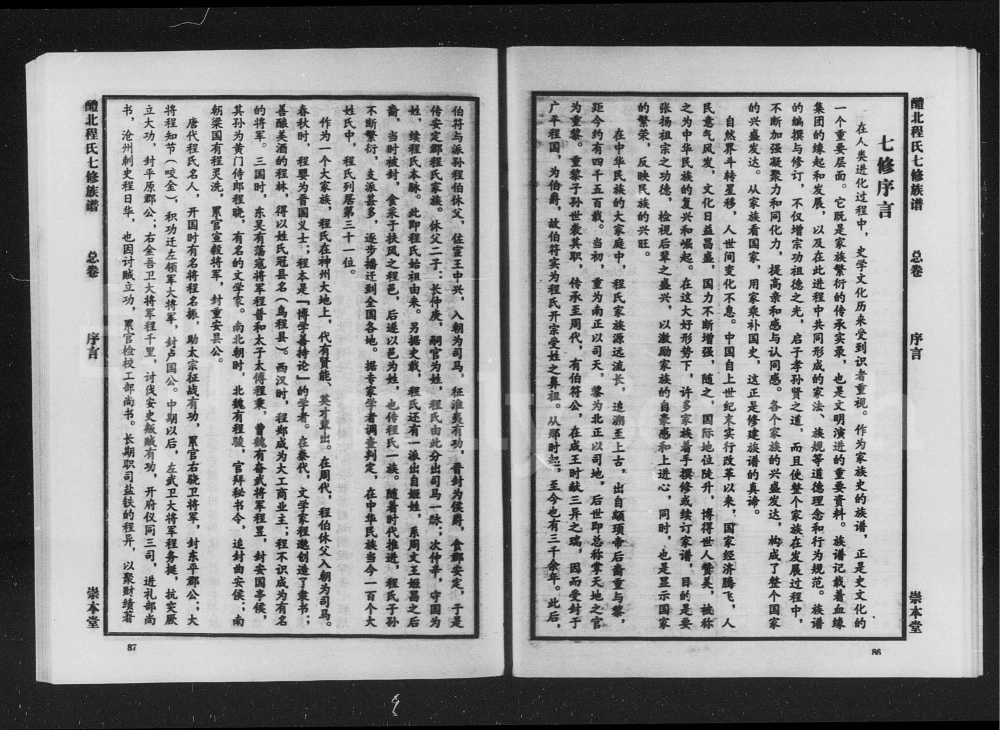 醴北程氏七修族谱 总卷 序言 崇本堂
七修序言
在人类进化过程中，史学文化历来受到识者重视。作为家族史的族谱，正是史文化的
一个重要层面。它既是家族繁衍的传承实录，也是文明演进的重要资料。族谱记载着血缘
集团的缘起和发展，以及在此进程中共同形成的家法、族规等道德理念和行为规范。族谱
的编撰与修订，不仅增宗功祖德之光，启子孝孙贤之道，而且使整个家族在发展过程中，
不断加强凝聚力和同化力，提高亲和感与认同感。各个家族的兴盛发达，构成了整个国家
的兴盛发达。从家族看国家，用家乘补国史，这正是修建族谱的真谛。
自然界斗转星移，人世间变化不息。中国自上世纪末实行改革以来，国家经济腾飞，人
民意气风发，文化日益昌盛，国力不断增强，随之，国际地位陡升，博得世人赞美，被称
之为中华民族的复兴和崛起。在这大好形势下，许多家族着手撰修或续订家谱，目的是要
张扬祖宗之功德，检视后辈之盛兴，以激励家族的自豪感和上进心，同时，也是显示国家
的繁荣，反映民族的兴旺。
在中华民族的大家庭中，程氏家族源远流长，追溯至上古，出自颛顼帝后裔重与黎，
距今约有四千五百载。当初，重为南正以司天，黎为北正以司地，后世即总称掌天地之官
为重黎。重黎子孙世袭其职，传承至周代，有伯符公，在成王时献三异之瑞，因而受封于
广平程国，为伯爵，故伯符实为程氏开宗受姓之鼻祖。从那时起，至今也有三千余年。此后，
86
伯符与派孙程伯休父，佐宣王中兴，入朝为司马，征淮夷有功，晋封为侯爵，食郡安定，于是
传安定郡程氏家族。休父二子：长仲庚，嗣官为姓，程氏由此分出司马一脉；次仲辛，守国为
姓，续程氏本脉。此即程氏始祖由来。另据史载，程氏还有一派出自姬姓，系周文王姬昌之后
裔，当时被封，食采于扶风之程邑，后遂以邑为姓，也传程氏一族。随着时代推进，程氏子孙
不断繁衍，支派甚多，逐步播迁到全国各地。据专家学者调查判定，在中华民族当今一百个大
姓氏中，程氏列居第三十一位。
作为一个大家族，程氏在神州大地上，代有贤能、英才辈出。在周代，程伯休父入朝为司马。
春秋时，程婴为晋国义士；程本是「博学善持论」的学者。在秦代，文学家程邈创造了隶书；
善酿美酒的程林，得以姓氏冠县名（乌程县）。西汉时，程郑成为大工商业主；程不识成为有名
的将军。三国时，东吴有荡寇将军程普和太子太傅程秉，曹魏有奋武将军程昱，封安国亭侯，
其孙为黄门侍郎程晓，有名的文学家。南北朝时，北魏有程骏，官拜秘书令，追封曲安侯；南
朝梁国有程灵洗，累官宣毅将军，封重安县公。
唐代程氏名人，开国时有名将程名振，助太宗征战有功，累官右骁卫将军，封东平郡公；大
将程知节（咬金），积功迁左领军大将军，封卢国公。中期以后，左武卫大将军程务挺，抗突厥
立大功，封平原郡公；右金吾卫大将军程千里，讨伐安史叛贼有功，开府仪同三司，进礼部尚
书，沧州刺史程日华，也因讨贼立功，累官检校工部尚书。长期职司盐铁的程异，以聚财绩著
醴北程氏七修族谱 总卷 序言 崇本堂
87